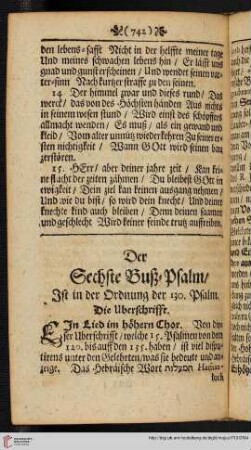 (742)
den lebens-safft Nicht in der helffte meiner tage
Und meines schwachen lebens hin / Er lässt uns
gnad und gunst erscheinen / Und wendet seinen va-
ter-sinn Nach kurtzer straffe zu den seinen.
14. Der himmel zwar und dieses rund / Das
werck / das von des Höchsten händen Aus nichts
in seinem wesen stund / Wird einst des schöpffers
allmacht wenden / Es muß / als ein gewand und
kleid / Von alter unnütz wieder kehren Zu seiner er-
sten nichtigkeit / Wann GOtt wird seinen bau
zerstören.
15. HErr / aber deiner jahre zeit / Kan kei-
ne flacht der zeiten zähmen / Du bleibest GOtt in
ewigkeit / Dein ziel kan keinen ausgang nehmen /
Und wie du bist / so wird dein knecht / Und deiner
knechte kind auch bleiben / Denn deinen saamen
und geschlecht Wird keiner feinde trutz auffreiben.
Der
Sechste Buß-Psalm /
Ist in der Ordnung der 130. Psalm.
Die Uberschrifft.
EIn Lied im höhern Chor. Von die-
ser Uberschrifft / welche 15. Psalmen von dem
120. bis auff den 135. haben / ist viel dispu-
tirens unter den Gelehrten / was sie bedeute und an-
zeige. Das Hebräische Wort המעלות Hamaa-
loth